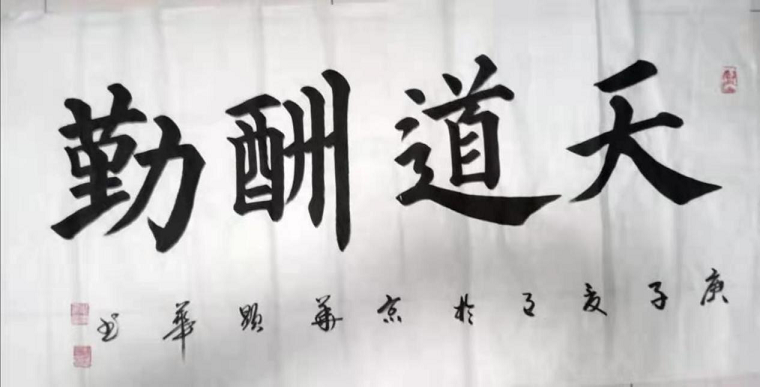 天道酬勤
庚子夏月於京華顯華书